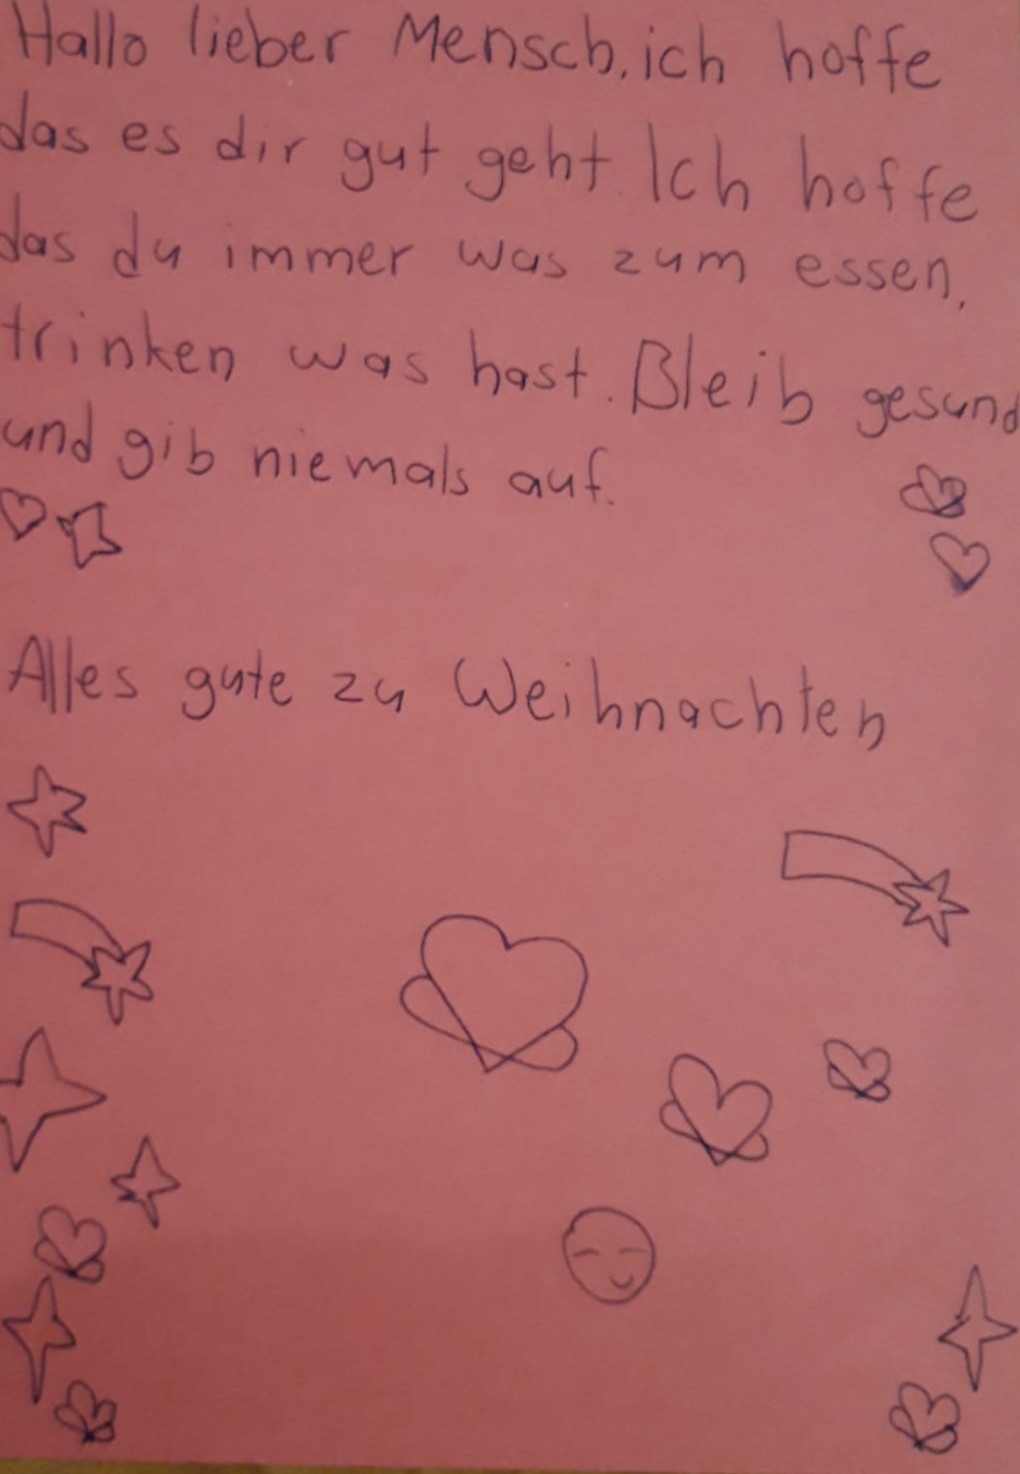 Hallo lieber Mensch, ich hoffe
das es dir gut geht. Ich hoffe
das du immer was zum essen,
trinken was hast. Bleib gesund
und gib niemals auf.
Alles gute zu Weihnachten